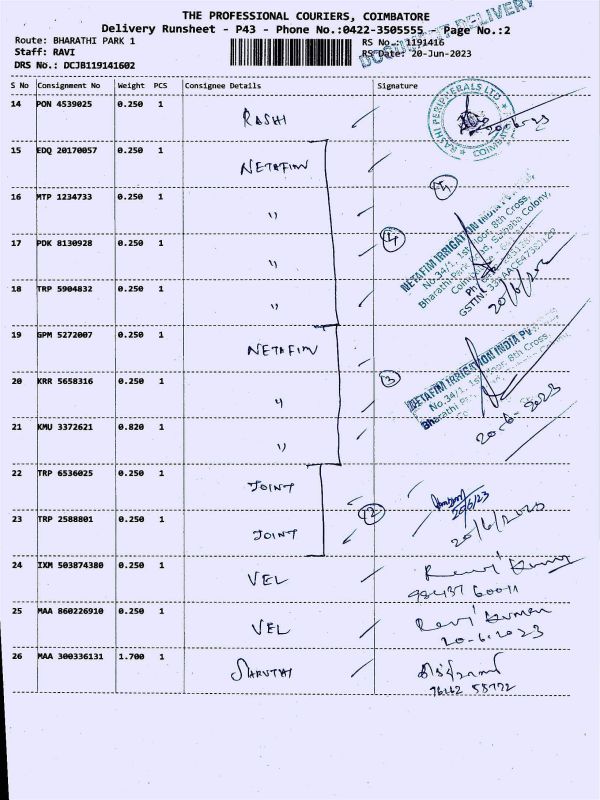 THE PROFESSIONAL COURIERS, COIMBATORE
Delivery Runsheet - P43 - Phone No.:0422-3505555 - Page No.:2
DOCUMENT DELIVERY
Route: BHARATHI PARK 1 RS No.: 1191416
Staff: RAVI RS Date: 20-Jun-2023
DRS No.: DCJB119141602
S No Consignment No Weight PCS Consignee Details Signature
14 PON 4539025 0.250 1 RASHI
RASHI PERIPHERALS LTD
15 EDQ 20170057 0.250 1 NETAFIM
16 MTP 1234733 0.250 1 "
17 PDK 8130928 0.250 1 " 4
NETAFIM IRRIGATION INDIA
No.34/1, 1st Floor, 8th Cross,
Bharathi Park Road, Saibaba Colony,
18 TRP 5904832 0.250 1 "
19 GPM 5272007 0.250 1 NETAFIM
NETAFIM IRRIGATION INDIA PV
No.34/1, 1st Floor, 8th Cross,
20 KRR 5658316 0.250 1 " 3
21 KMU 3372621 0.820 1 "
20-6-2023
22 TRP 6536025 0.250 1 JOINT
20/6/23
23 TRP 2588801 0.250 1 JOINT 2
24 IXM 503874380 0.250 1 VEL Ravi Kumar
98437 60011
25 MAA 860226910 0.250 1 VEL Ravi Kumar
20-6-2023
26 MAA 300336131 1.700 1 MARUTHI